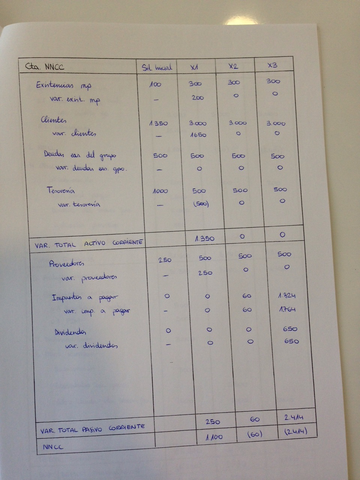 Cta NNCC Sal. inicial X1 X2 X3
Existencias mp 100 300 300 300
var. exist. mp – 200 0 0
Clientes 1350 3.000 3.000 3.000
var. clientes – 1650 0 0
Deudas con del grupo 500 500 500 500
var. deudas con gpo. – 0 0 0
Tesorería 1000 500 500 500
var. tesorería – (500) 0 0
VAR. TOTAL ACTIVO CORRIENTE 1.350 0 0
Proveedores 250 500 500 500
var. proveedores – 250 0 0
Impuestos a pagar 0 0 60 1.824
var. imp. a pagar – 0 60 1764
Dividendos 0 0 0 650
var. dividendos – 0 0 650
VAR TOTAL PASIVO CORRIENTE 250 60 2.414
NNCC 1.100 (60) (2.414)